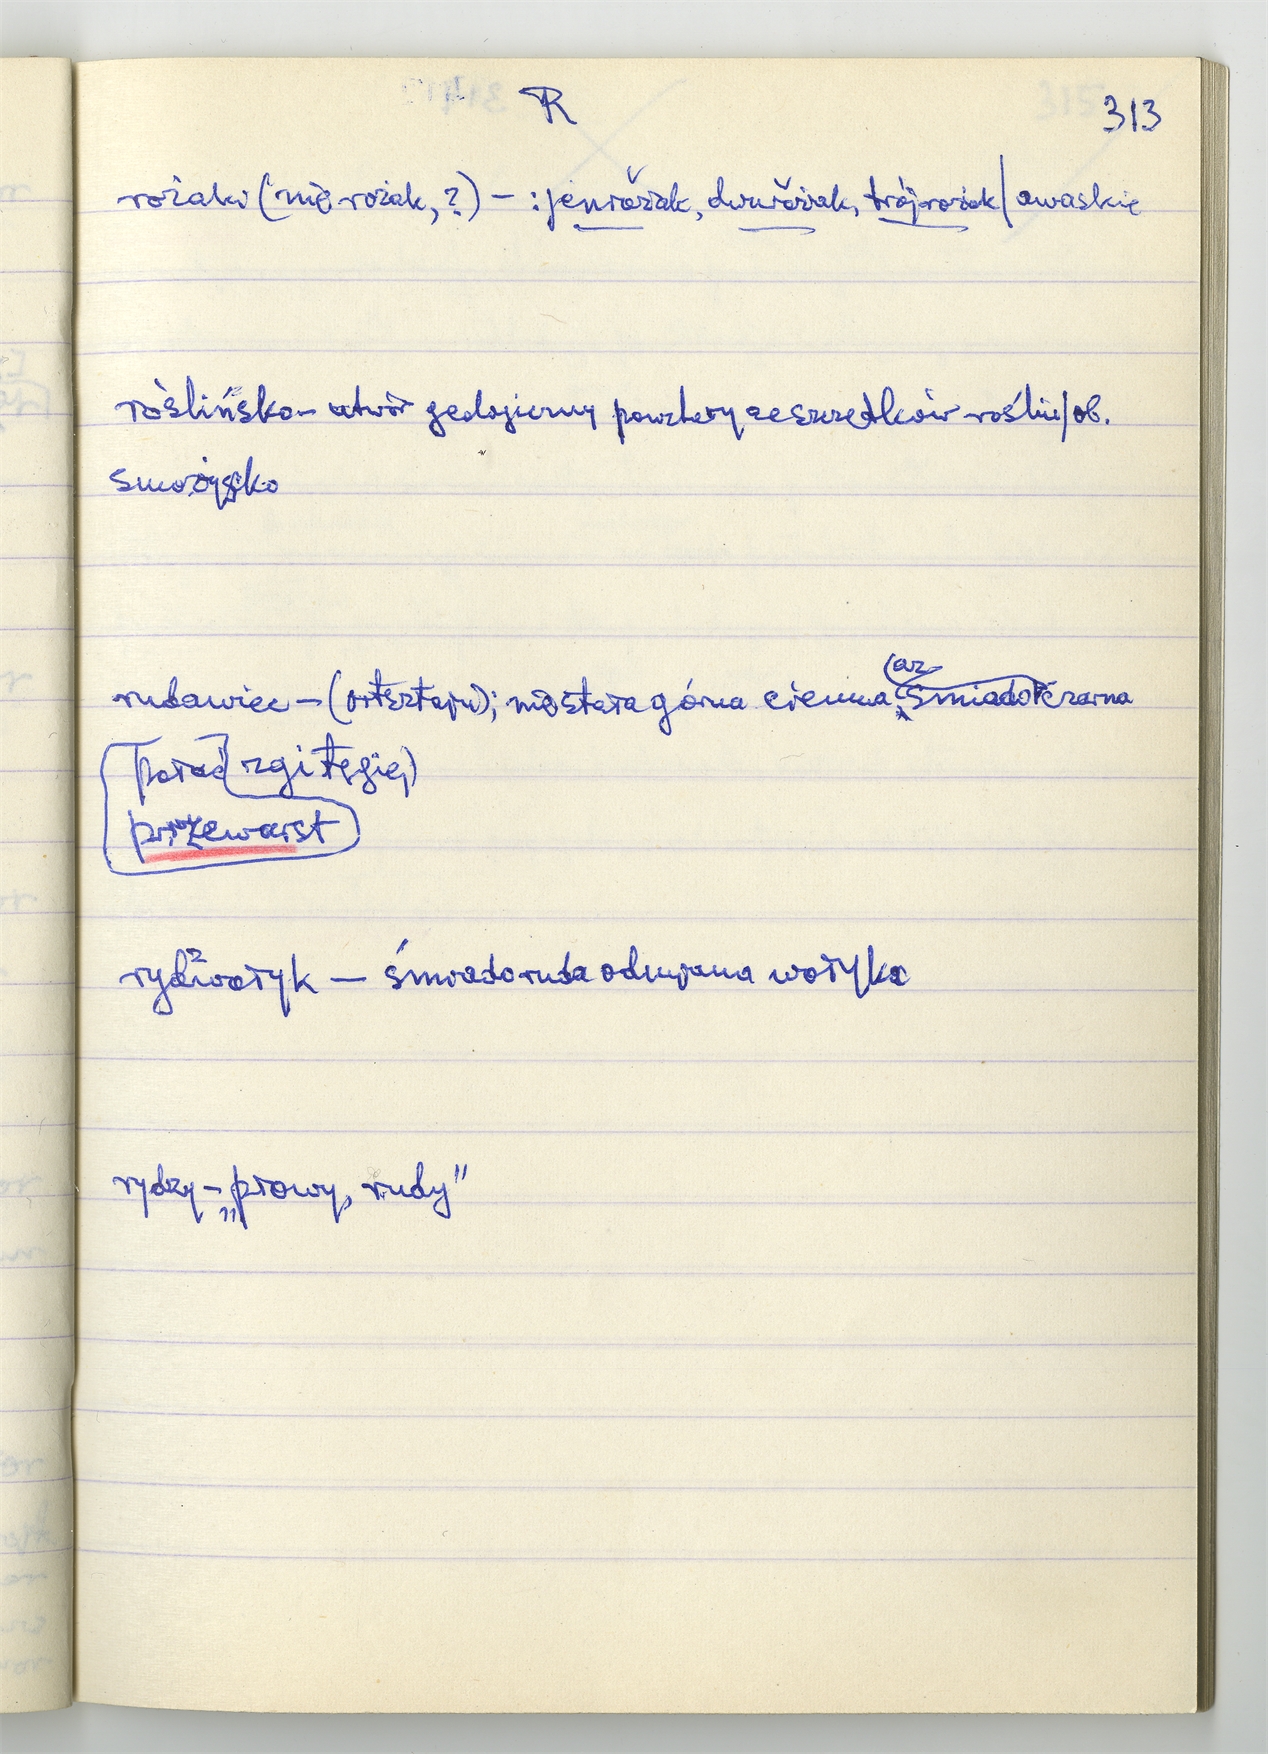 R 313
rożaki (nie rożak, ?) – : jenrożak, dwurożak, trójrożak / awaskie
roślińsko – utwór geologiczny powstały ze szczątków roślin / ob.
smożysko
rudawiec – (ortsztajn);
górna ciemna, (az śmiadoczarna
przewarst
rydzwołyk — śmiadoruda odmiana wołyka
rydzy – „płowy, rudy”